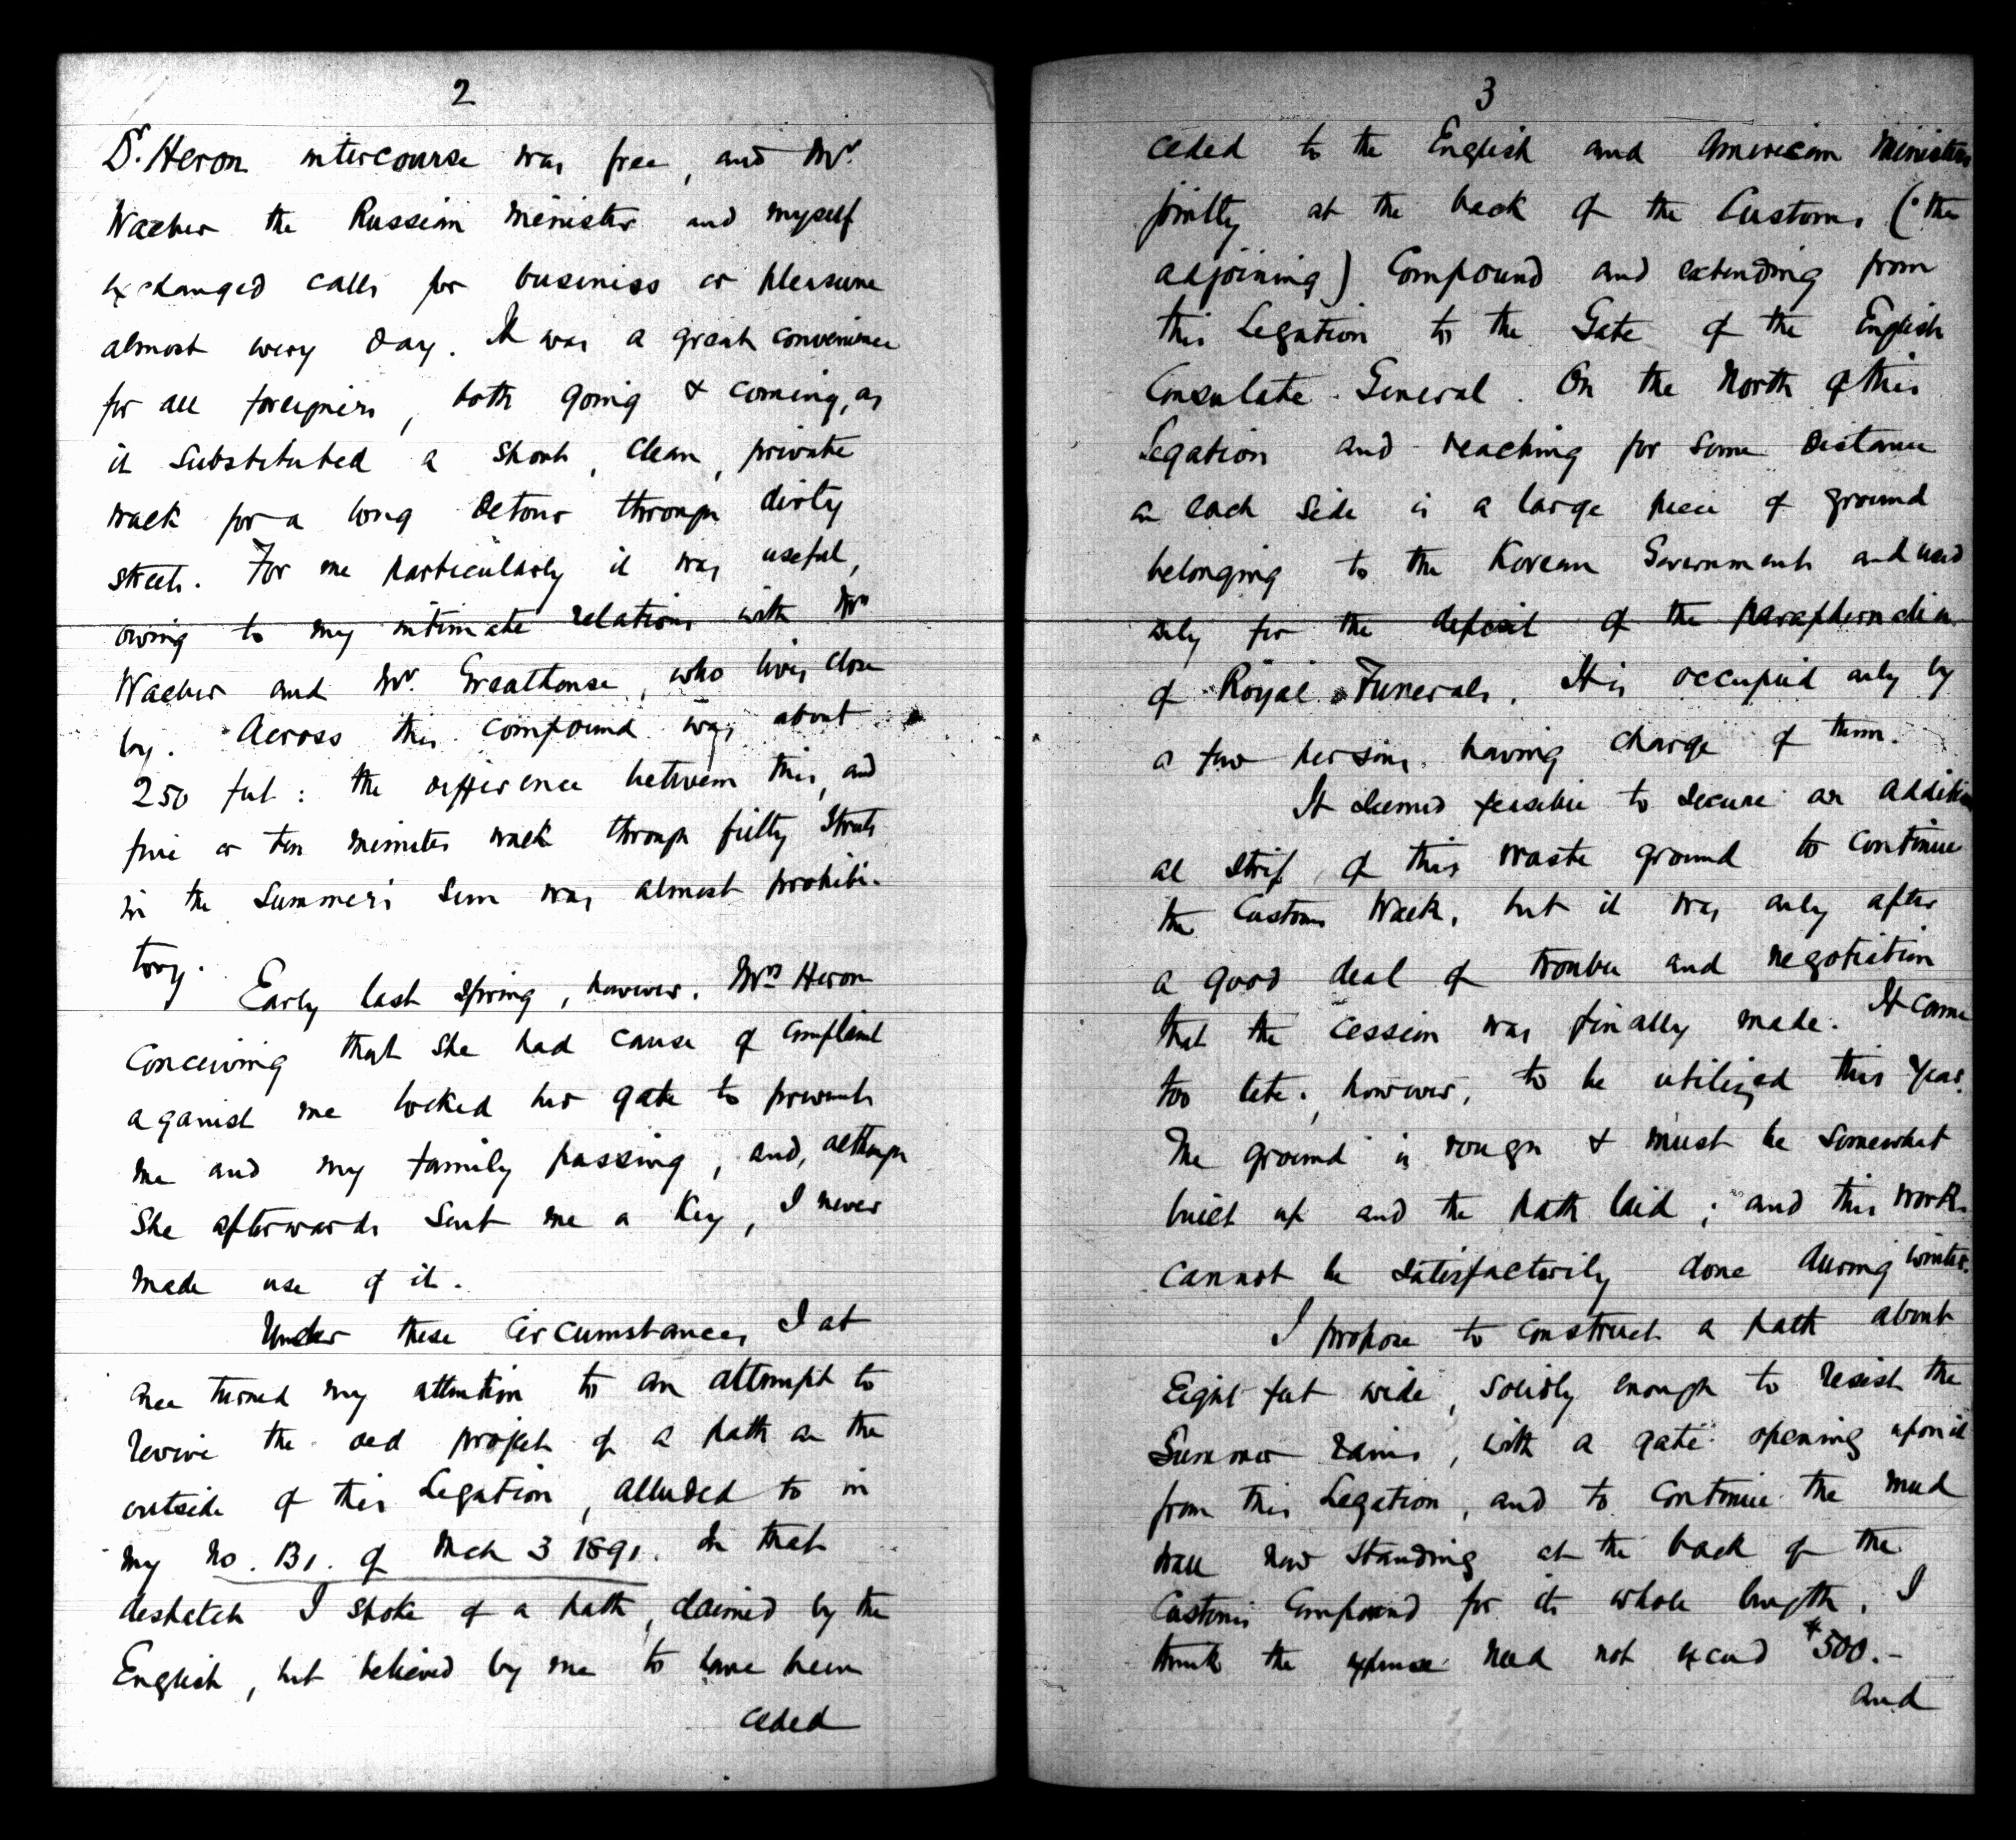 2
Dr. Heron intercourse was free, and Mr.
Waeber the Russian Minister and myself
exchanged calls for business or pleasure
almost every day. It was a great convenience
for all foreigners, both going & coming, as
it substituted a short, clean, private
walk for a long detour through dirty
streets. For me particularly it was useful,
owing to my intimate relations with Mr.
Waeber and Mr. Greathouse, who lives close
by. Across this compound was about
250 feet: the difference between this, and
five or ten minutes walk through filthy streets
in the Summer's Sun was almost prohibi-
tory.
Early last Spring, however, Mrs. Heron
conceiving that she had cause of complaint
against me locked her gate to prevent
me and my family passing, and, although
she afterwards sent me a Key, I never
made use of it.
Under these circumstances I at
once turned my attention to an attempt to
revive the old project of a path on the
outside of this Legation, alluded to in
my No. 131. of Mch 3 1891. In that
despatch I spoke of a path, claimed by the
English, but believed by me to have been
ceded
3
ceded to the English and American Ministers
jointly at the back of the Customs (the
adjoining) Compound and extending from
this Legation to the Gate of the English
Consulate-General. On the North of this
Legation and reaching for some distance
on each side is a large piece of ground
belonging to the Korean Government and used
only for the deposit of the paraphernalia
of Royal Funerals. It is occupied only by
a few persons having charge of them.
It seemed feasible to secure an addition
al strip of this waste ground to continue
the Customs Walk, but it was only after
a good deal of trouble and negotiation
that the cession was finally made. It came
too late, however, to be utilized this year.
The ground is rough & must be somewhat
built up and the path laid; and this work
cannot be satisfactorily done during winter.
I propose to construct a path about
Eight feet wide, solidly enough to resist the
Summer rains, with a gate opening upon it
from this Legation, and to continue the mud
wall now standing at the back of the
Customs Compound for its whole length. I
think the expense need not exceed $500.-
and